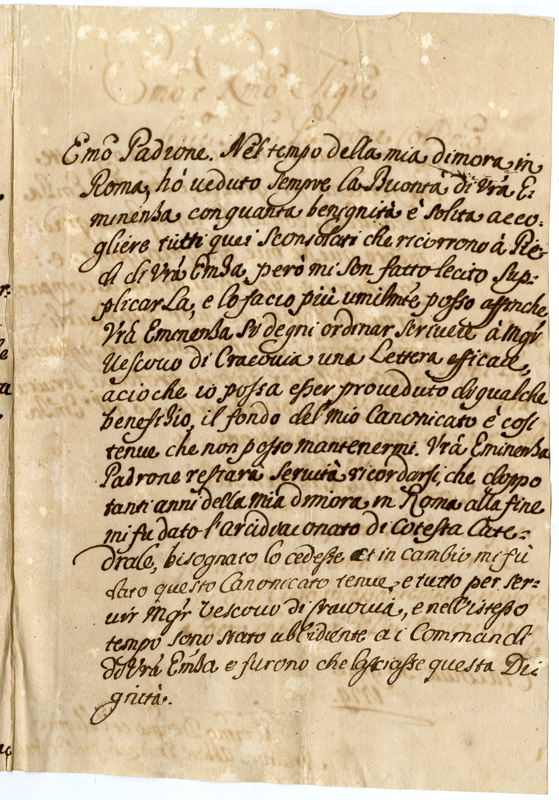 Emõ Padrone. Nel tempo della mia dimora in
Roma, hò ueduto sempre la Buontà di Vrã E-
minenha con quanta benignità è solita acco-
gliere tutti quei Sconsolati che ricorrono à Pie-
di di Vrã Emha, però mi son fatto lecito sup-
plicarLa, e lo facio più umilmte posso affinche
Vrã Eminenha si degni ordinar scriuere à Mgr
Uescouo di Cracouia una Lettera efficace,
acioche io possa esser proueduto di qualche
benefihio, il fondo del mio Canonicato è cosi
tenue che non posso mantenermi. Vrã Eminenha
Padrone restarà seruità ricordarsi, che doppo
tanti anni della mia dimora in Roma alla fine
mi fu dato l'arcidiaconato di Cotesta Cate-
drale, bisognato lo cedesse et in cambio mi fù
dato questo Canonicato tenue, e tutto per ser-
uir Mgr Vescouo di Cracouia, e nell'istesso
tempo sono stato ubbidiente a i Commandi
di Vrã Emha e furono che lasciasse questa Di-
gnità.